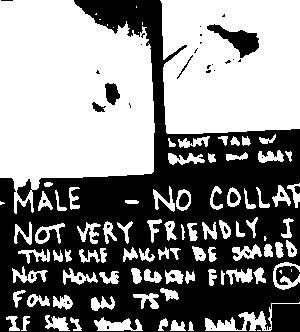 LIGHT TAN W/
BLACK AND GREY
- MALE - NO COLLAR
NOT VERY FRIENDLY, I
THINK SHE MIGHT BE SCARED
NOT HOUSE BROKEN EITHER
FOUND ON 75TH
IF SHE'S YOURS CALL DAN